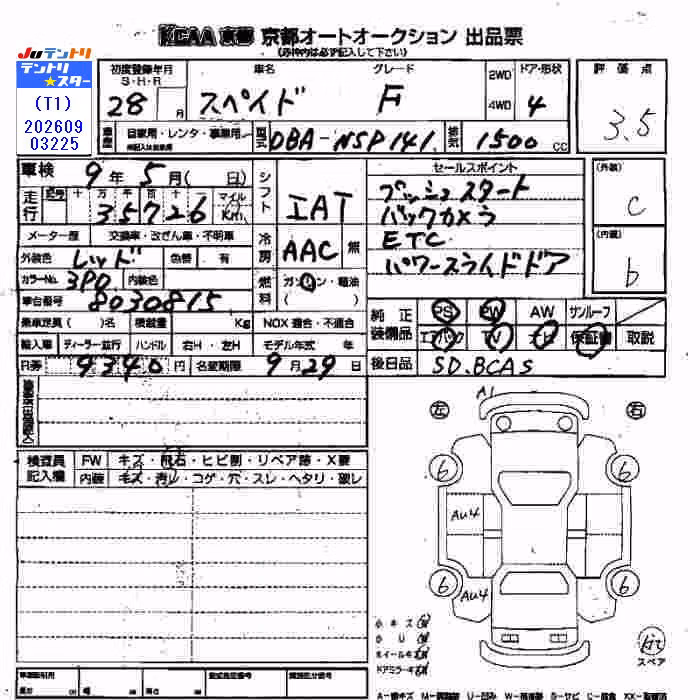 KCAA 京都 京都オートオークション 出品票
(赤枠内は必ず記入して下さい)
JUテントリ
テントリ
★スター
(T1)
202609
03225
初度登録年月 車名 グレード 2WD ドア・形状 評価点
S・H・R
28 月 スペイド F 4WD 4 3.5
車歴 自家用・レンタ・事業用 型式 DBA-NSP141 排気 1500 CC
車検 9年5月(日) シフト IAT セールスポイント (外装)
走行 十万千百十一 マイル プッシュスタート C
35726 Km バックカメラ
メーター歴 交換車・改ざん車・不明車 冷房 AAC 無 ETC (内装)
外装色 レッド 色替 有 パワースライドドア b
カラーNo. 3P0 内装色 燃料 ガソリン・軽油
車台番号 8030815 ( )
乗車定員( )名 積載量 Kg NOX適合・不適合 純正 PS PW AW サンルーフ
輸入車 ディーラー並行 ハンドル 右H・左H モデル年式 年 装備品 エアバッグ TV ナビ 保証書 取説
R券 9340円 名変期限 9月29日 後日品 SD.BCAS
A1
左 右
検査員 FW キズ・飛石・ヒビ割・リペア跡・X要
記入欄 内装 キズ・汚れ・コゲ・穴・スレ・ヘタリ・破レ
6 6
AU4
6 6
AU4
小キズ
小U
ホイールキズ
ドアミラーキズ
スペア